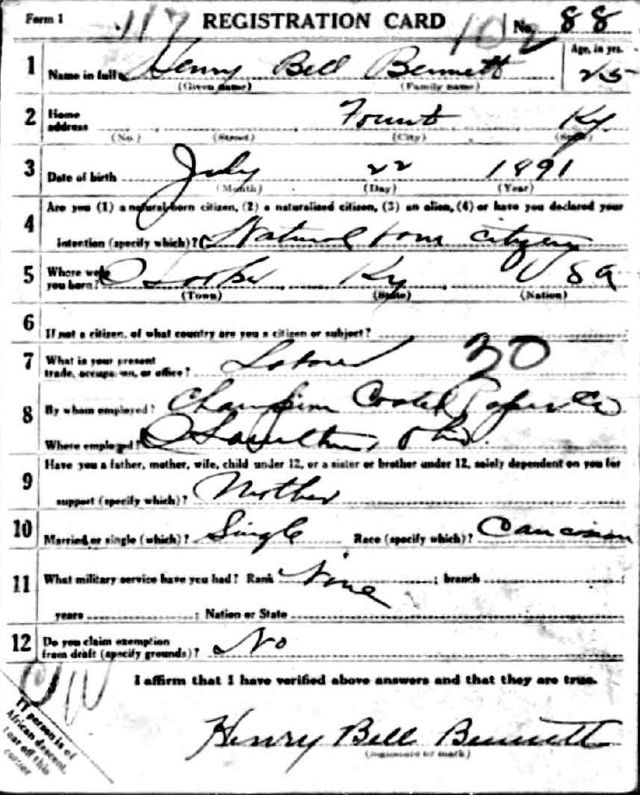 Form 1 117 REGISTRATION CARD 102 No. 88
1 Name in full Henry Bell Bennett Age, in yrs. 25
(Given name) (Family name)
2 Home address Fount Ky.
(No.) (Street) (City) (State)
3 Date of birth July 22 1891
(Month) (Day) (Year)
4 Are you (1) a natural-born citizen, (2) a naturalized citizen, (3) an alien, (4) or have you declared your
intention (specify which)? Natural born citizen
5 Where were you born? Ky USA
(Town) (State) (Nation)
6 If not a citizen, of what country are you a citizen or subject?
7 What is your present trade, occupation, or office? Laborer 30
8 By whom employed? Champion Coated Paper Co
Where employed? Hamilton, Ohio.
9 Have you a father, mother, wife, child under 12, or a sister or brother under 12, solely dependent on you for
support (specify which)? Mother
10 Married or single (which)? Single Race (specify which)? Caucasian
11 What military service have you had? Rank None ; branch ;
years ; Nation or State
12 Do you claim exemption from draft (specify grounds)? No
I affirm that I have verified above answers and that they are true.
If person is of
African descent,
tear off this
corner
Henry Bell Bennett
(Signature or mark)